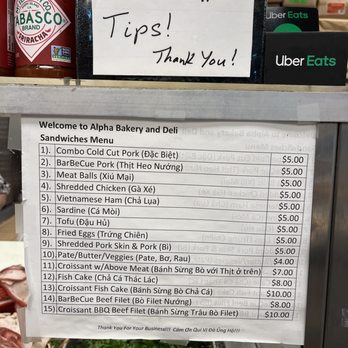 TABASCO
BRAND
SRIRACHA
Tips!
Thank You!
Uber Eats
Uber Eats
Welcome to Alpha Bakery and Deli
Sandwiches Menu
1). Combo Cold Cut Pork (Đặc Biệt) $5.00
2). BarBeCue Pork (Thịt Heo Nướng) $5.00
3). Meat Balls (Xíu Mại) $5.00
4). Shredded Chicken (Gà Xé) $5.00
5). Vietnamese Ham (Chả Lụa) $5.00
6). Sardine (Cá Mòi) $5.00
7). Tofu (Đậu Hủ) $5.00
8). Fried Eggs (Trứng Chiên) $5.00
9). Shredded Pork Skin & Pork (Bì) $5.00
10). Pate/Butter/Veggies (Pate, Bơ, Rau) $4.00
11). Croissant w/Above Meat (Bánh Sừng Bò với Thịt ở trên) $7.00
12). Fish Cake (Chả Cá Thác Lác) $8.00
13). Croissant Fish Cake (Bánh Sừng Bò Chả Cá) $10.00
14). BarBeCue Beef Filet (Bò Filet Nướng) $8.00
15). Croissant BBQ Beef Filet (Bánh Sừng Trâu Bò Filet) $10.00
Thank You For Your Business!!! Cảm Ơn Qui Vị Đã Ủng Hộ!!!